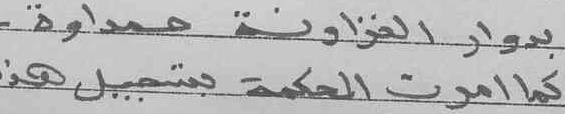 بدوار الغزاونة حمداوة -
كما امرت المحكمة بتسجيل هذه